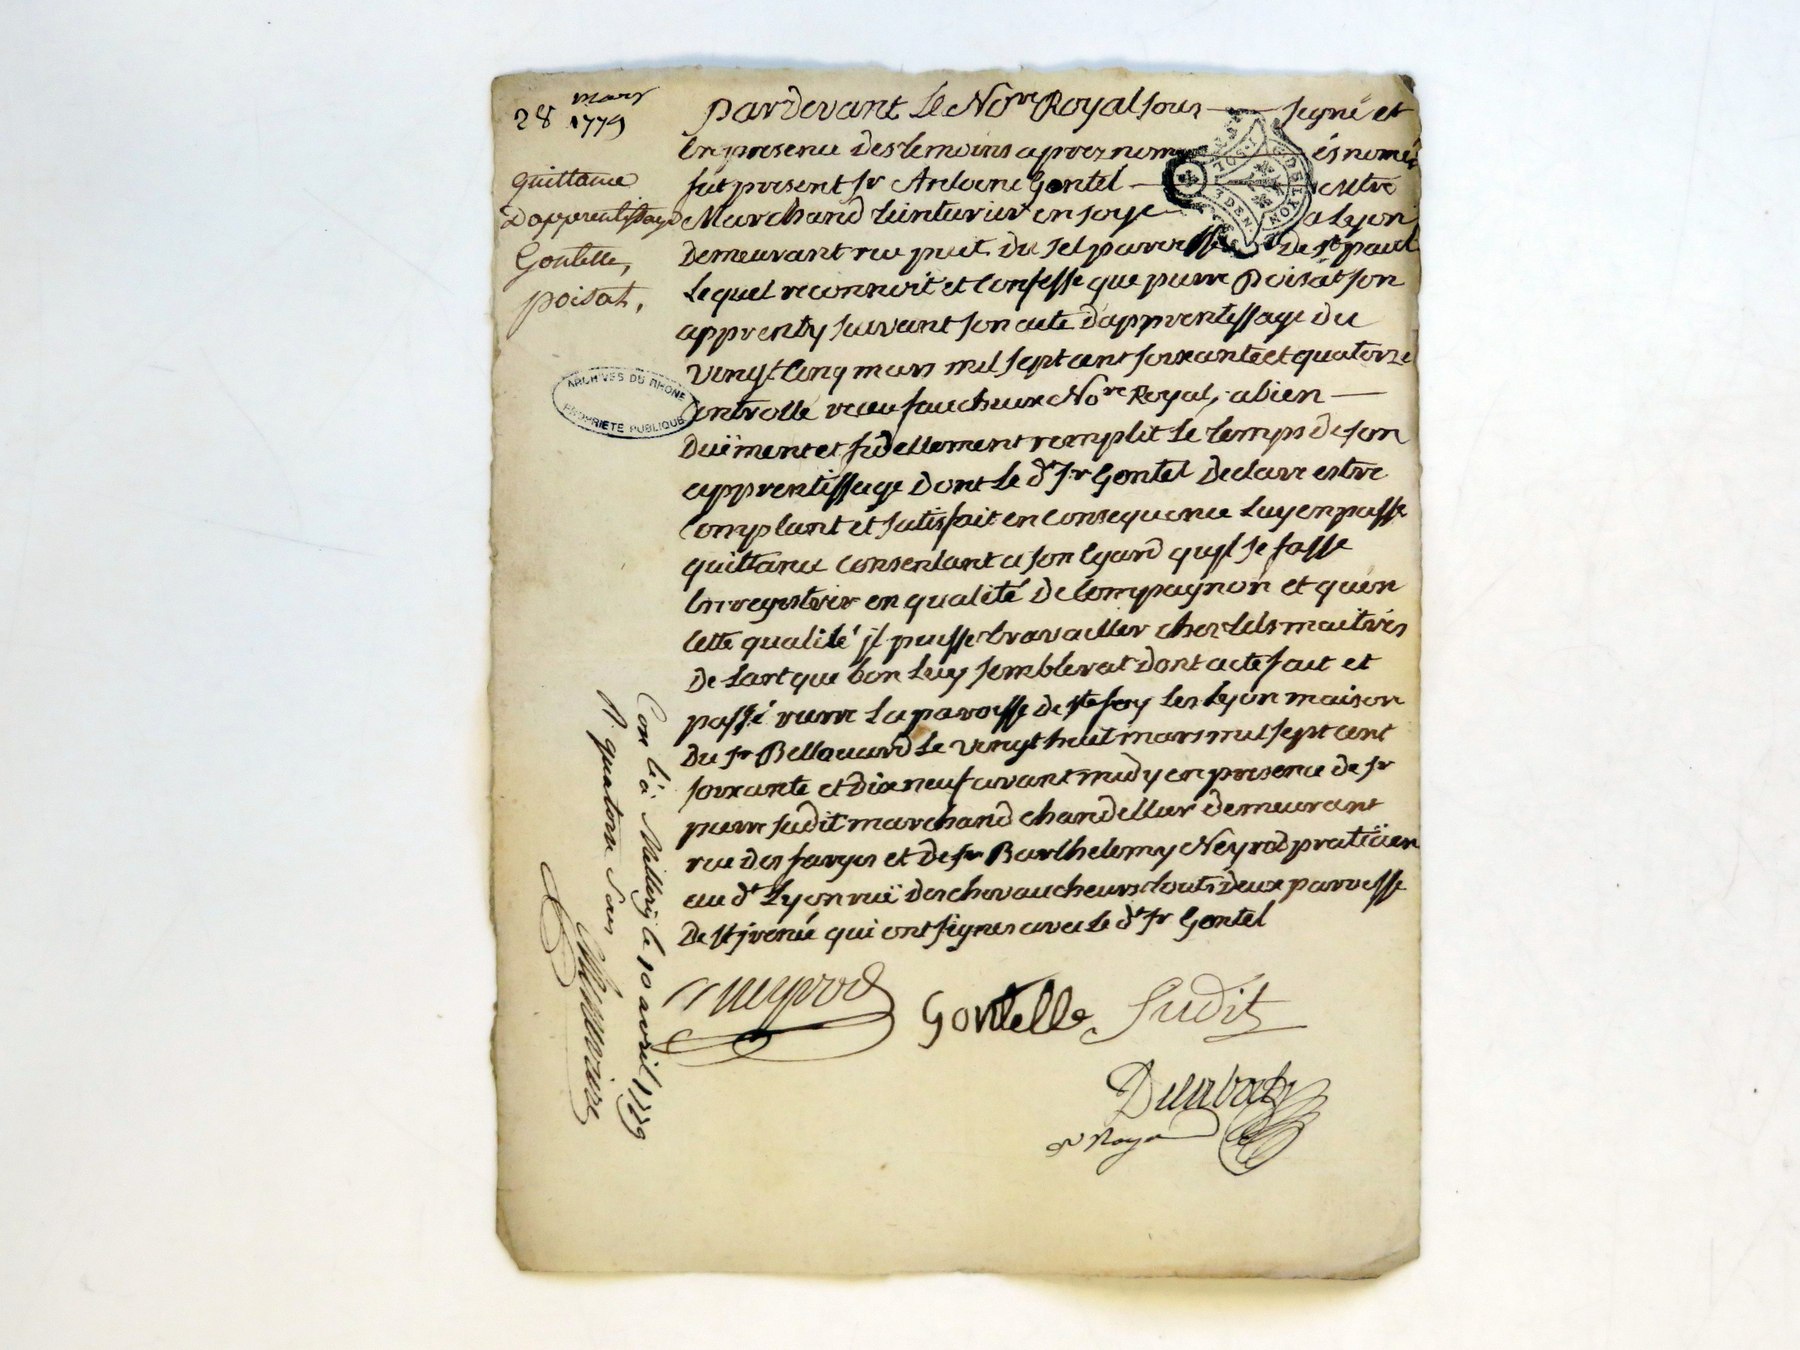 28 mars
1779
quittance
D'apprentissage
Gontelle,
poisat,
ARCHIVES DU RHONE
PROPRIETE PUBLIQUE
pardevant Le No.re Royal sous signé et
En presence des temoins aprez nommés només
fut present sr Antoine Gontel Mtre
Marchand teinturier en soye a Lyon
Demeurant rue puit du sel paroisse De st paul
Lequel reconnoit et Confesse que pierre Poisat son
apprenty suivant son acte d'apprentissage du
vingt Cinq mars mil sept cent soixante et quatorze
Controllé receu faucheux No.re Royal, abien
Duëment et fidellement remplit Le temps de son
apprentissage Dont Le dt sr Gontel Declare estre
Comptant et satisfait en Consequence Luy en passe
quittance Consentant a son Egard qu'jl se fasse
Enregistrer en qualité De Compagnon et qu'en
Cette qualité jl puisse travailler chez Les maitres
De Lart que bon Luy semblerat dont acte fait et
passé vierre La paroisse de ste foy Les Lyon maison
Du sr Bellouard Le vingt huit mars mil sept cent
soixante et dix neuf avant midy en presence de sr
pierre Sudit marchand chandellier demeurant
rue des farges et de sr Barthelemy Neyrod praticien
au dt Lyon ruë des chevaucheurs touts deux paroisse
De st jrenée qui ont signes avec Le dt sr Gontel
Neyrod Gontelle Sudit
Royal
Con lé à Millery le 10 avril 1779
R. quatorze sous